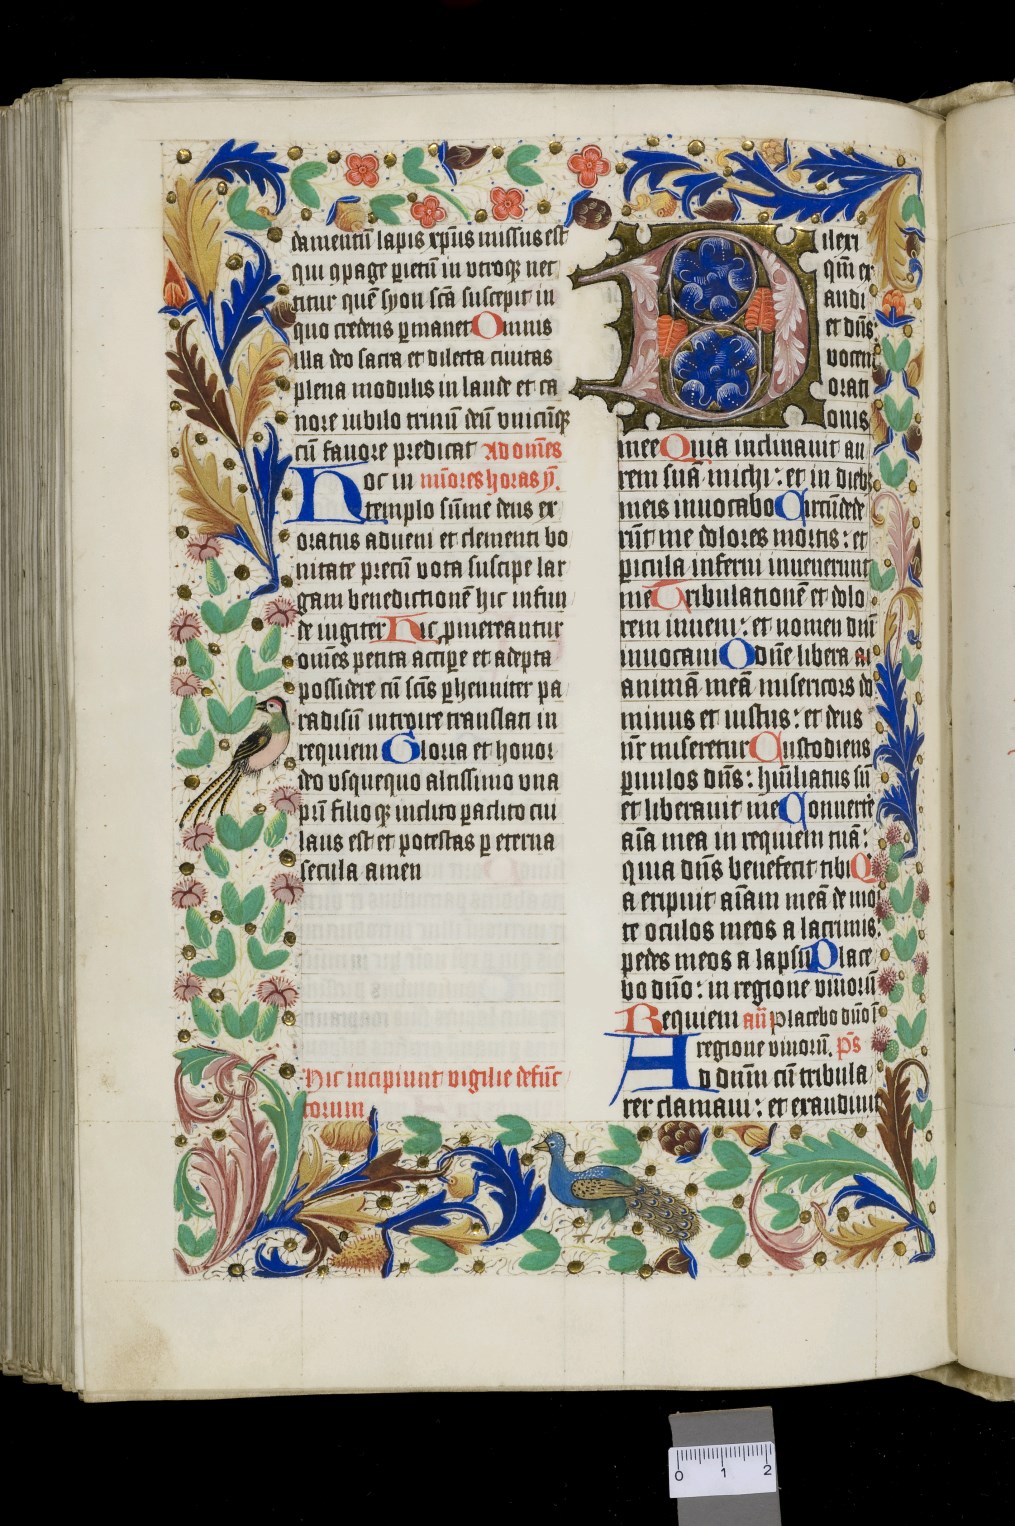 damentū lapis xp̄us missus est
qui 9page pietū in vtroq; nec
titur quē syon scā suscepit in
quo credens ꝑmanet Omnis
illa deo sacra et dilecta ciuitas
plena modulis in laude et ca
nore iubilo trinū deū vnicūq;
cū fauore predicat Ad om̄es
Hoc in mīores horas ẏ.
templo sūme deus ex
oratus adueni et clementi bo
nitate precū vota suscipe lar
gam benedictionē hic infun
de iugiter Hic ꝓmereantur
om̄es petita accipe et adepta
possidere cū scīs ꝑhenniter pa
radisū introire translati in
requiem Gloria et honor
deo vsquequo altissimo vna
pr̄i filioq; inclito ꝑaclito cui
laus est et potestas ꝑ eterna
secula amen
Hic incipiunt vigilie defūc
torum
Dilexi
qm̄ ex
audi
et dn̄s
vocem
orati
onis
mee Quia inclinauit au
rem suā michi : et in dieb;
meis inuocabo Circūdede
rūt me dolores mortis : et
ꝑicula inferni inuenerunt
me Tribulationē et dolo
rem inueni : et nomen dn̄i
inuocaui O dn̄e libera
animā meā misericors do
minus et iustus : et deus
nr̄ miseretur Custodiens
ꝑuulos dn̄s : hūiliatus sū
et liberauit me Conuerte
aīa mea in requiem tuā :
quia dn̄s benefecit tibi Q
a eripuit aīam meā de mor
te oculos meos a lacrimis :
pedes meos a lapsu Place
bo dn̄o : in regione viuorū
Requiem an̄ Placebo dn̄o ī
regione viuorū. ps̄
Ad dnm̄ cū tribula
rer clamaui : et exaudiuit